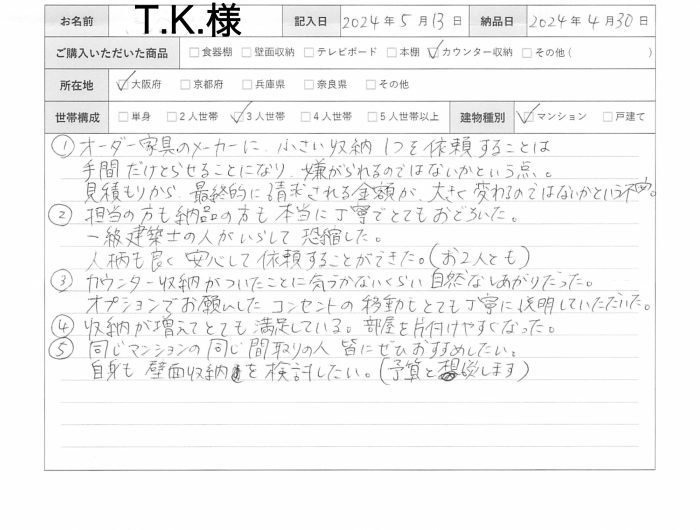 お名前 T.K.様 記入日 2024年5月13日 納品日 2024年4月30日
ご購入いただいた商品 □食器棚 □壁面収納 □テレビボード □本棚 ☑カウンター収納 □その他( )
所在地 ☑大阪府 □京都府 □兵庫県 □奈良県 □その他
世帯構成 □単身 □2人世帯 ☑3人世帯 □4人世帯 □5人世帯以上 建物種別 ☑マンション □戸建て
① オーダー家具のメーカーに、小さい収納1つを依頼することは
手間だけとらせることになり、嫌がられるのではないかという点、。
見積もりから、最終的に請求される金額が、大きく変わるのではないかという不安。
② 担当の方も納品の方も本当に丁寧でとてもおどろいた。
一級建築士の人がいらして恐縮した。
人柄も良く安心して依頼することができた。(お2人とも)
③ カウンター収納がついたことに気づかないくらい自然なしあがりだった。
オプションでお願いしたコンセントの移動もとても丁寧に説明していただいた。
④ 収納が増えてとても満足している。部屋を片付けやすくなった。
⑤ 同じマンションの同じ間取りの人 皆にぜひおすすめしたい。
自身も壁面収納を検討したい。(予算と相談します)